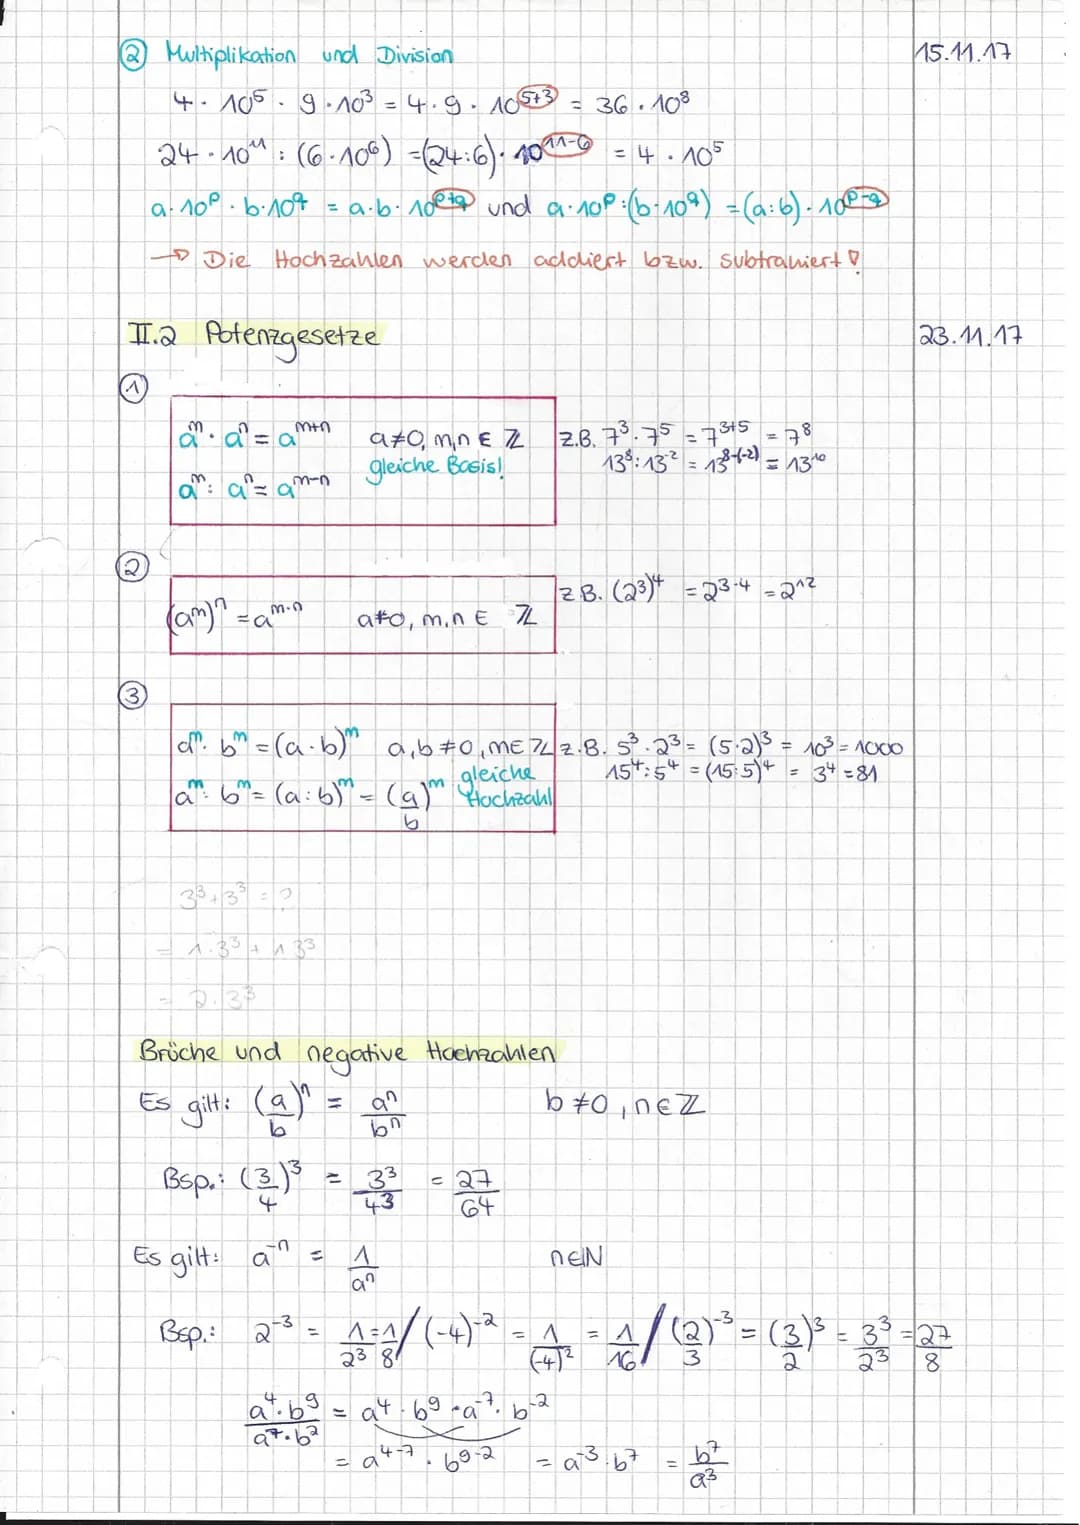 ② Multiplikation und Division 15.11.17
4 · 10⁵ · 9 · 10³ = 4 · 9 · 10⁵⁺³ = 36 · 10⁸
24 · 10¹¹ : (6 · 10⁶) = (24:6) · 10¹¹⁻⁶ = 4 · 10⁵
a · 10ᵖ · b · 10^q = a · b · 10^(p+q) und a · 10ᵖ : (b · 10^q) = (a:b) · 10^(p-q)
→ Die Hochzahlen werden addiert bzw. subtrahiert!
II.2 Potenzgesetze 23.11.17
①
aᵐ · aⁿ = aᵐ⁺ⁿ a≠0, m,n ∈ ℤ z.B. 7³ · 7⁵ = 7³⁺⁵ = 7⁸
gleiche Basis! 13⁸ : 13⁻² = 13^(8-(-2)) = 13¹⁰
aᵐ : aⁿ = aᵐ⁻ⁿ
②
(aᵐ)ⁿ = a^(m·n) a≠0, m,n ∈ ℤ z.B. (2³)⁴ = 2^(3·4) = 2¹²
③
aᵐ · bᵐ = (a · b)ᵐ a,b ≠ 0, m ∈ ℤ z.B. 5³ · 2³ = (5·2)³ = 10³ = 1000
gleiche Hochzahl 15⁴ : 5⁴ = (15:5)⁴ = 3⁴ = 81
aᵐ : bᵐ = (a : b)ᵐ = (a/b)ᵐ
3³ + 3³ = ?
= 1 · 3³ + 1 3³
= 2 · 3³
Brüche und negative Hochzahlen
Es gilt: (a/b)ⁿ = aⁿ/bⁿ b ≠ 0, n ∈ ℤ
Bsp.: (3/4)³ = 3³/4³ = 27/64
Es gilt: a⁻ⁿ = 1/aⁿ n ∈ ℕ
Bsp.: 2⁻³ = 1/2³ = 1/8 / (-4)⁻² = 1/(-4)² = 1/16 / (2/3)⁻³ = (3/2)³ = 3³/2³ = 27/8
a⁴ · b⁹/a⁷ · b² = a⁴ · b⁹ · a⁻⁷ · b⁻²
= a⁴⁻⁷ · b⁹⁻² = a⁻³ · b⁷ = b⁷/a³